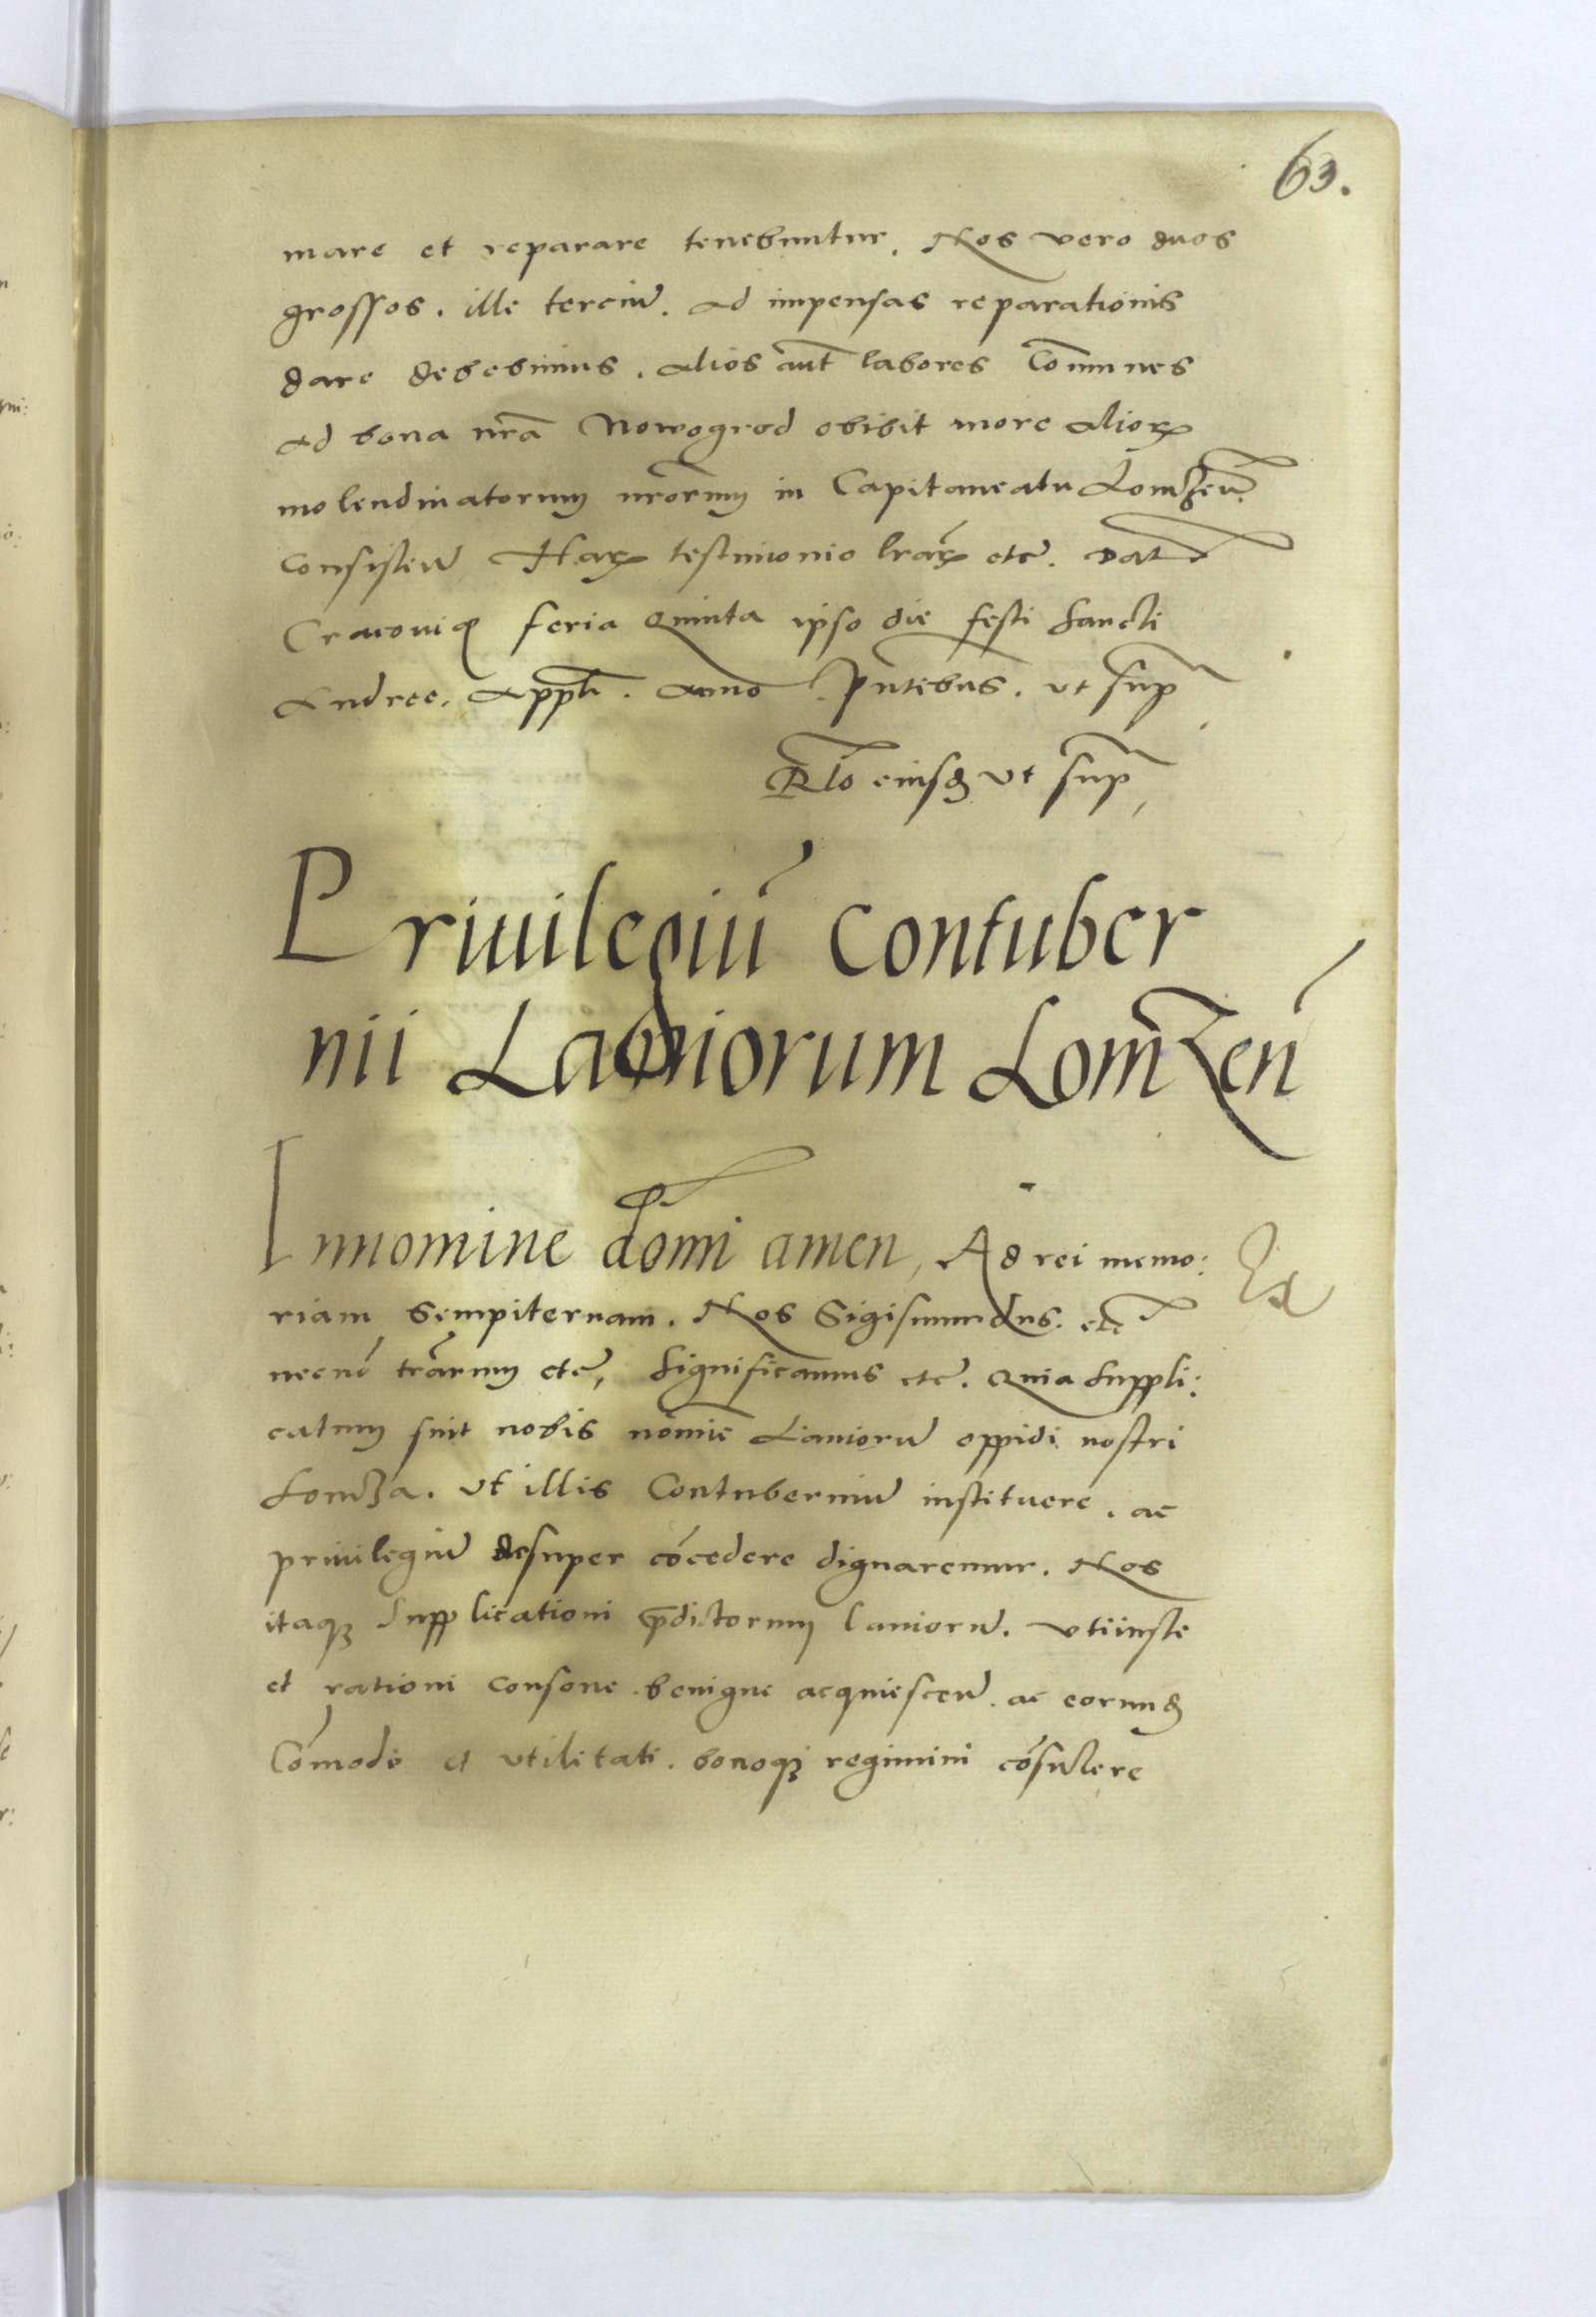 63.
mare et reparare tenebuntur. Nos vero duos
grossos. ille terciũ. ad impensas reparationis
dare debebimus. alios aut̃ labores com̃unes
ad bona nr̃a Nowogrod obibit more alioꝝ
molendinatorum nr̃orum in Capitaneatu Lomzeñ.
Consisteñ Haꝝ testimonio lr̃aꝝ etc̃. Dat̃
Cracouię feria Quinta ipso die festi Sancti
Andree. Appli. anno Pñtibus. ut sup̃
Rl̃o eiusdꝫ ut sup̃
Priuilegiũ Contuber
nii Laniorum Lomzeñ
In nomine dom̃i amen, Ad rei memo:
riam Sempiternam. Nos Sigismundus. etc̃
necnõ tr̃arum etc̃, Significamus etc̃. Quia Suppli:
catum sũit nobis nomĩe Laniorũ oppidi nostri
Lomza. Ut illis Contuberniũ instituere. ac
priuilegiũ desuper cõcedere dignaremur. Nos
itaqꝫ Supplicationi p̃dictorum laniorũ. uti iuste
et rationi consone benigne acquiesceñ. ac eorundꝫ
Cõmodo et utilitati. bonoqꝫ regimini cõsulere